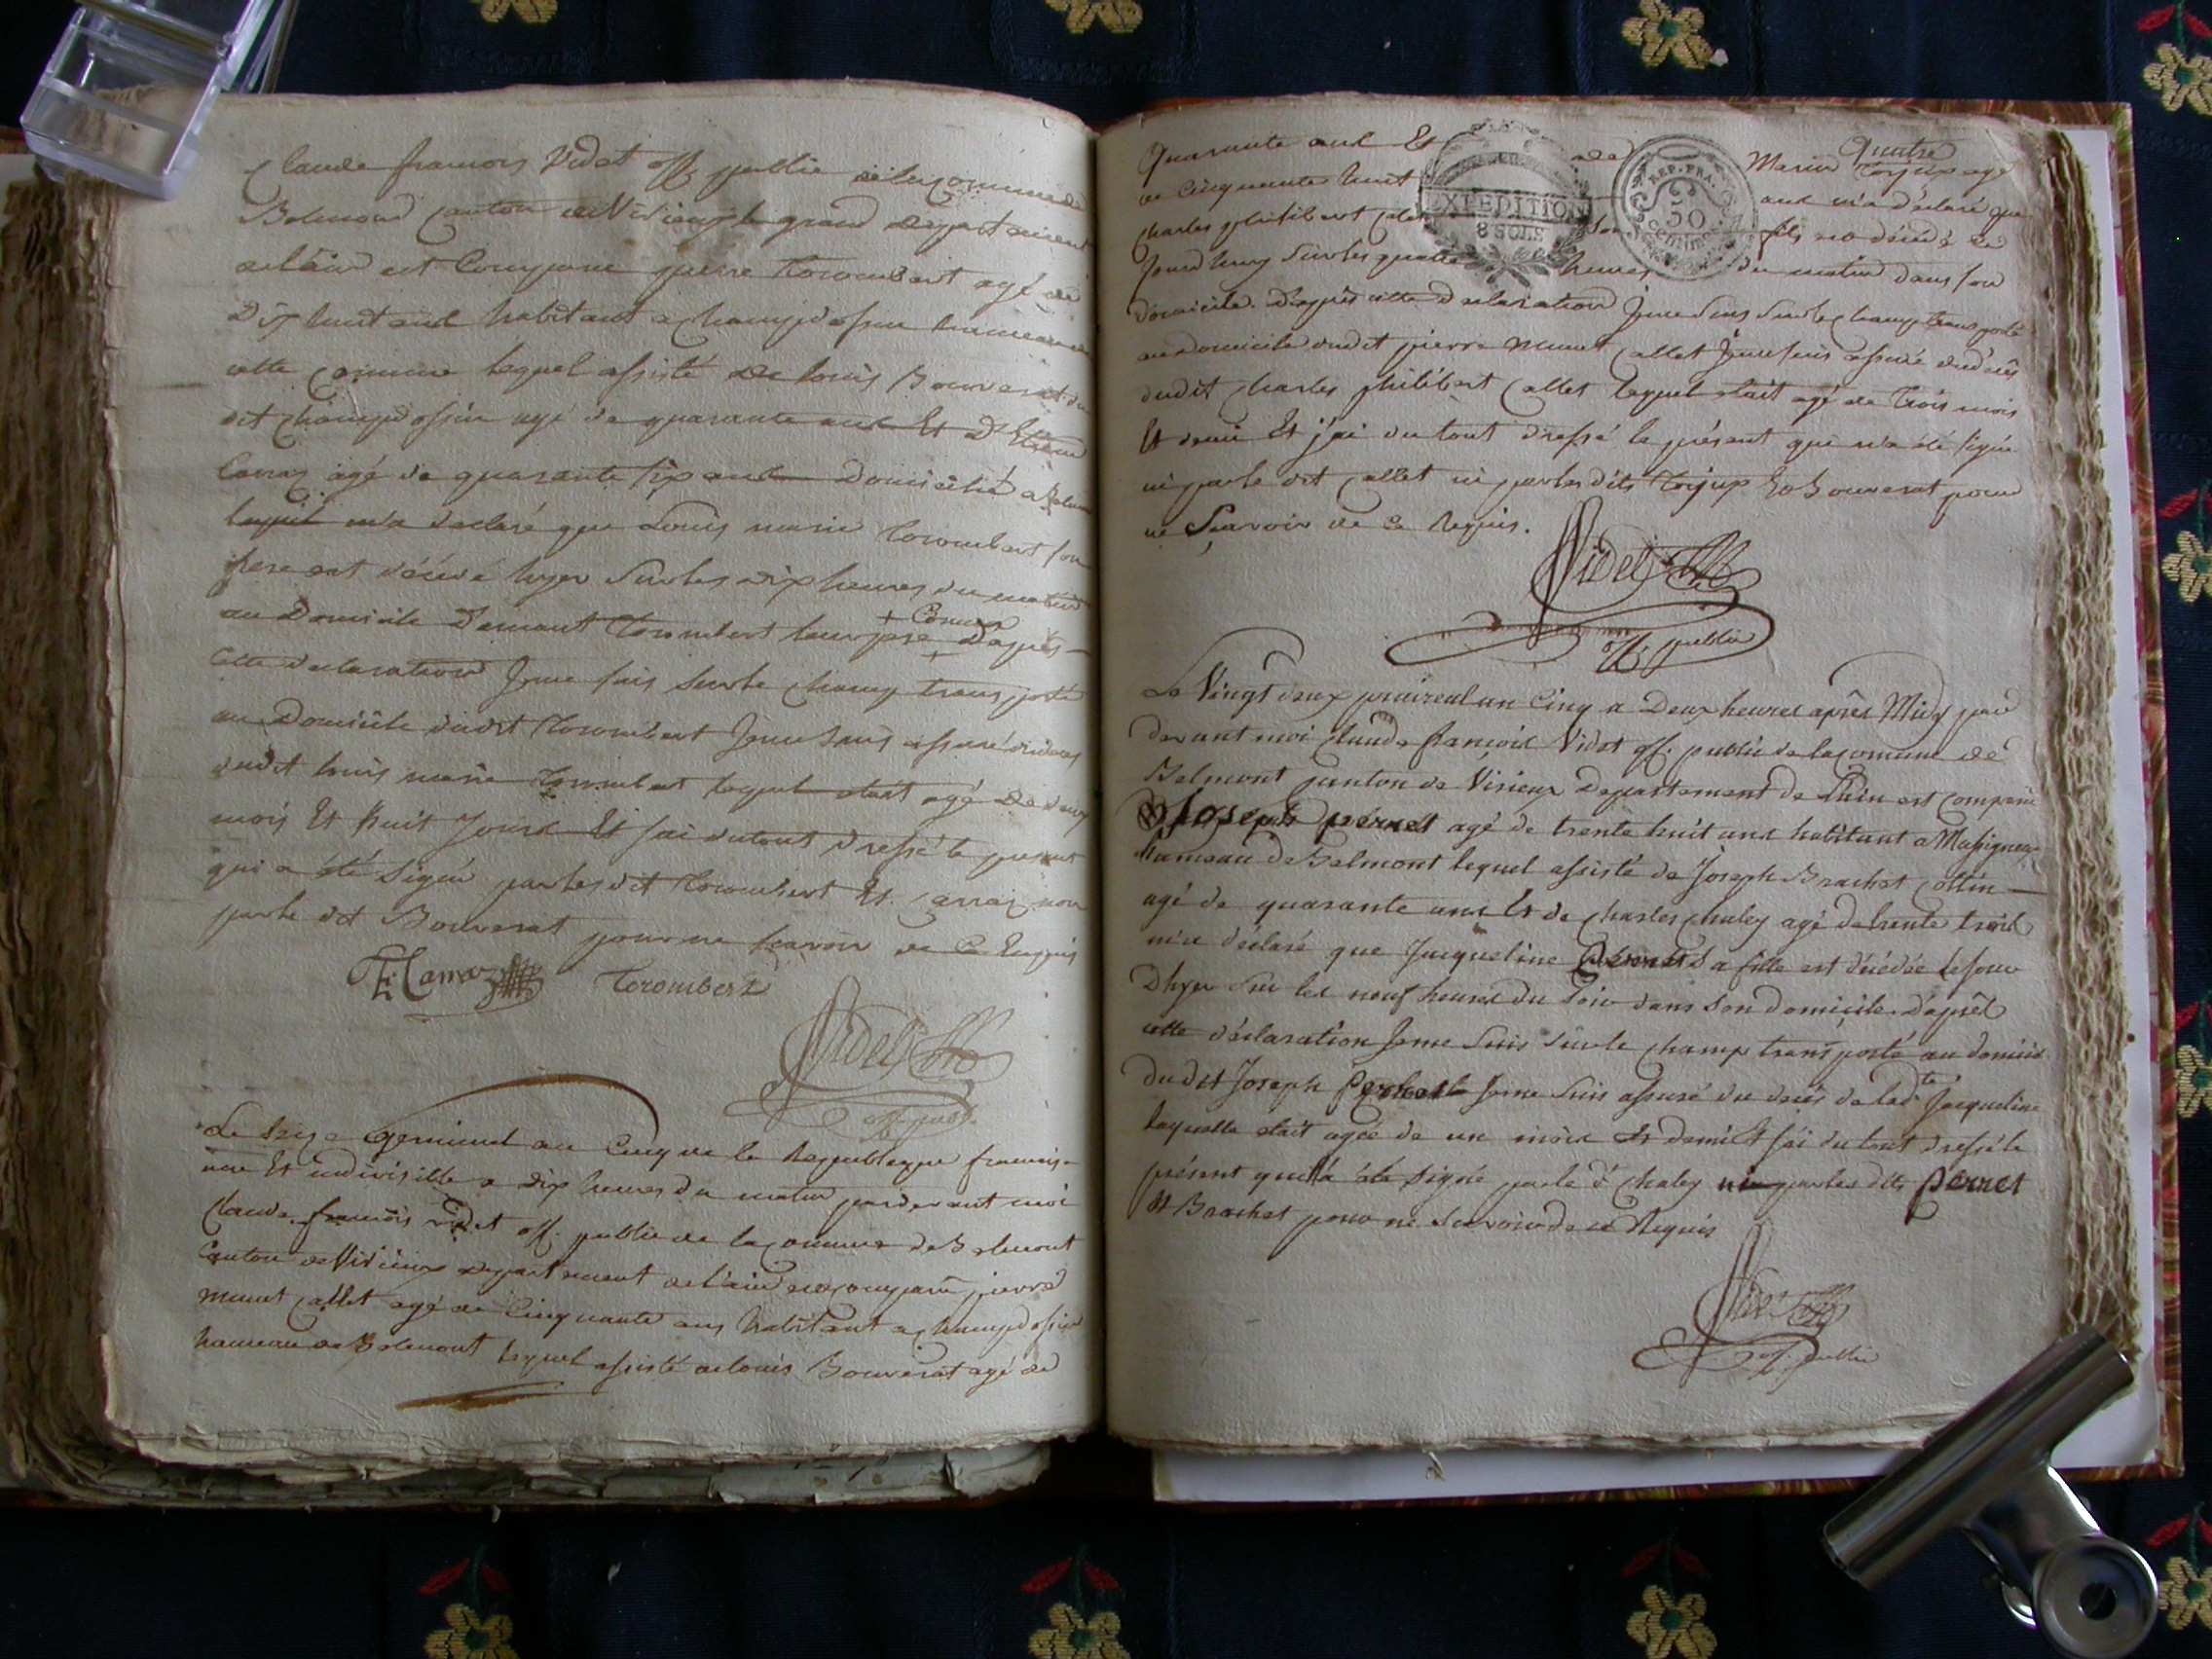 Claude francois Vidot off. public de la Commune de
Belmond Canton de Virieux le grand departement
de l'ain est Comparue pierre Torombert agé de
Dix huit ans habitant a Champdossin hameau de
cette Commune lequel assisté de louis Bouverat du
dit Champdossin agé de quarante ans Et D'
Carraz agé de quarante six ans Domicilié a
lequel m'a declaré que Louis marie Torombert son
frere est décédé hyer Sur les dix heures du matin
au Domicile Torombert leur pere + Comun D'après
Cette declaration Je me suis Sur le champ transporté
au Domicile dudit Torombert Je me suis assuré du deces
dudit louis marie Torombert lequel était agé de deux
mois Et huit Jours Et J'ai du tout dressé le present
qui a été Signé par les dit Torombert Et Carraz non
par le dit Bouverat pour ne scavoir de Ce Requis
Torombert
Vidot
off. public
Le Seize Germinal an Cinq de la Republique francaise
une Et indivisible a dix heures du matin par devant moi
Claude francois vidot off. public de la Commune de Belmont
Canton de Virieux departement de l'ain est Comparu pierre
munet Callet agé de Cinquante ans habitant a Champdossin
hameau de Belmont lequel assisté de louis Bouverat agé de
Quatre
Quarante ans Et de Marin Torjux agé
de Cinquante huit ans m'a déclaré que
Charles philibert Callet son fils est décédé ce
Jourd'huy Sur les quatre heures du matin dans son
domicile. D'après cette declaration Je me Suis Sur le Champ transporté
au Domicile dudit pierre Munet Callet Je me suis assuré du décès
dudit Charles philibert Callet lequel était agé de trois mois
Et demi Et j'ai du tout dressé le présent qui n'a été signé
ni par le dit Callet ni par les dits Torjux Et Bouverat pour
ne Sçavoir de Ce Requis.
EXPEDITION
8 SOLS
REP. FRA.
50
centimes
Vidot
off. public
Le Vingt deux praireal an Cinq a Deux heures après Midy par
devant moi Claude françois Vidot off. public de la Comune de
Belmont Canton de Virieux Departement de l'Ain est Comparu
Joseph perret agé de trente huit ans habitant a Massigneux
hameau de Belmont lequel assisté de Joseph Brachet Collin
agé de quarante ans Et de Charles Chaley agé de trente trois
m'a déclaré que Jacqueline Perret sa fille est décédée le Jour
D'hyer Sur les neuf heures du Soir dans son domicile. d'après
cette déclaration Je me Suis Sur le champ transporté au domicile
du dit Joseph Perret Je me Suis assuré du decès de lad.te Jacqueline
laquelle était agée de un mois Et demi Et j'ai du tout dressé le
présent qui a été Signé par le d. Chaley ni par les dits Perret
Et Brachet pour ne Scavoir de ce Requis
Vidot
off. public